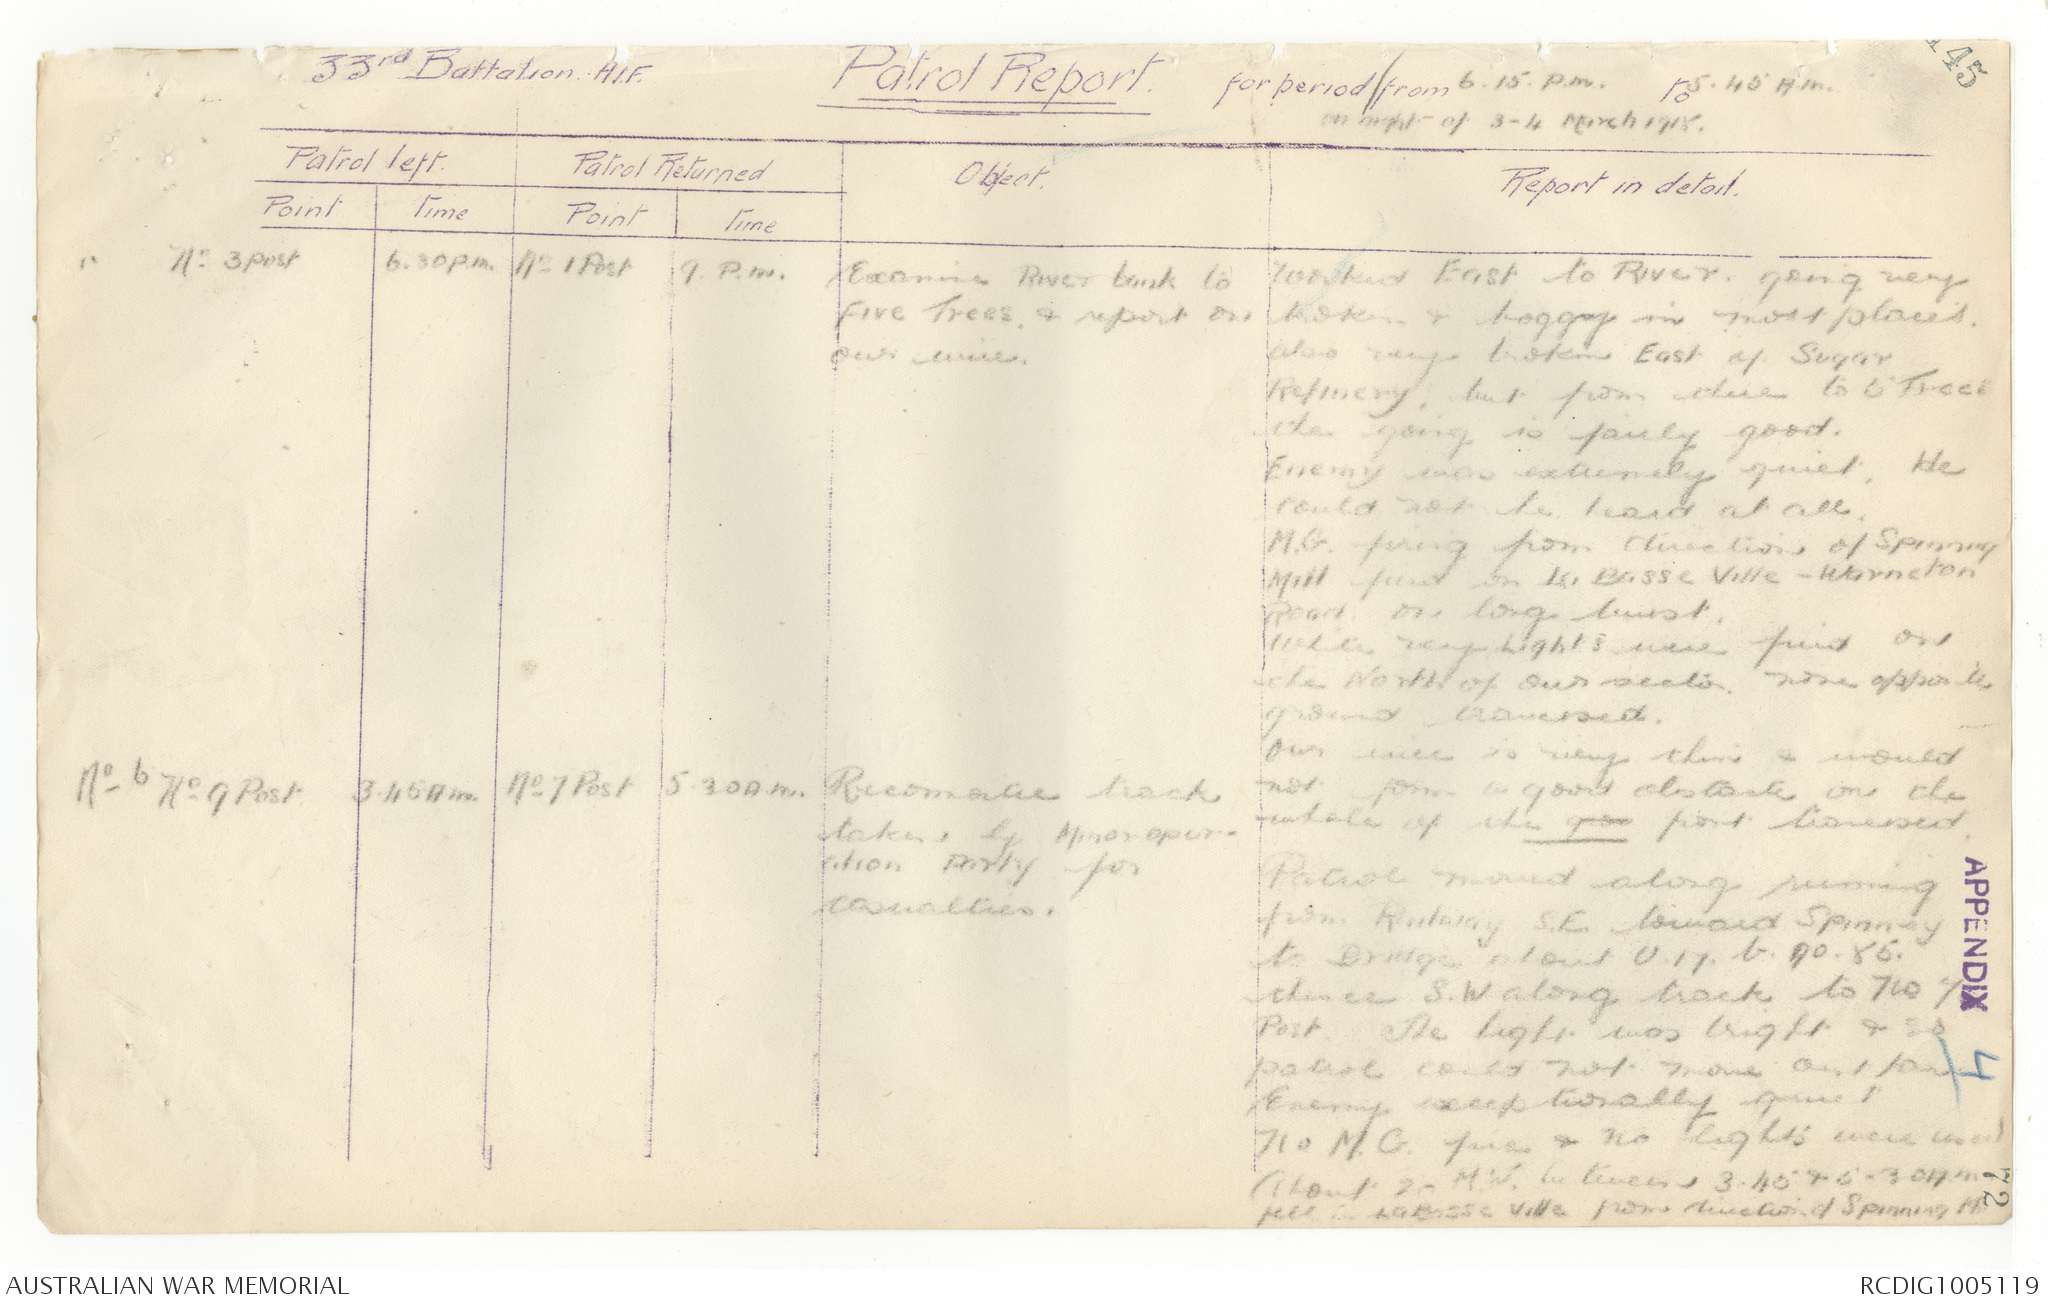 145
33rd Battalion A.I.F. Patrol Report. for period from 6.15. p.m. to 5.45 A.m.
on night of 3-4 March 1918.
Patrol left. Patrol Returned Object. Report in detail.
Point Time Point Time
" No 3 post 6.30 p.m. No 1 Post 9. P.m.
Examine River bank to
Five Trees, & report on
our wire.
Worked East to River. going very
broken & boggy in most places.
also very broken East of Sugar
Refinery, but from there to 5 Trees
the going is fairly good.
Enemy was extremely quiet. He
could not be heard at all.
M.G. firing from direction of Spinning
Mill fired on La Basse Ville - Warneton
Road. one long burst.
White very Lights were fired on
the North of our sector. none opposite
ground traversed.
Our wire is very thin & would
not form a good obstacle on the
whole of the front traversed.
No 6 No 9 Post 3.45 A.m. No 7 Post 5.30 A.m.
Reconnoitre track
taken by Minor oper-
ation Party for
casualties.
Patrol moved along running
from Railway S.E. toward Spinney
to Bridge about U.17.b.90.85.
thence S.W along track to No 7
Post. The light was bright & so
patrol could not move out far
Enemy exceptionally quiet
No M.G. fire & no lights were used
About M.W. between 3.45 & 5.30 A.m
fell in La Basse Ville from direction of Spinning Mill
APPENDIX
4
72
AUSTRALIAN WAR MEMORIAL RCDIG1005119